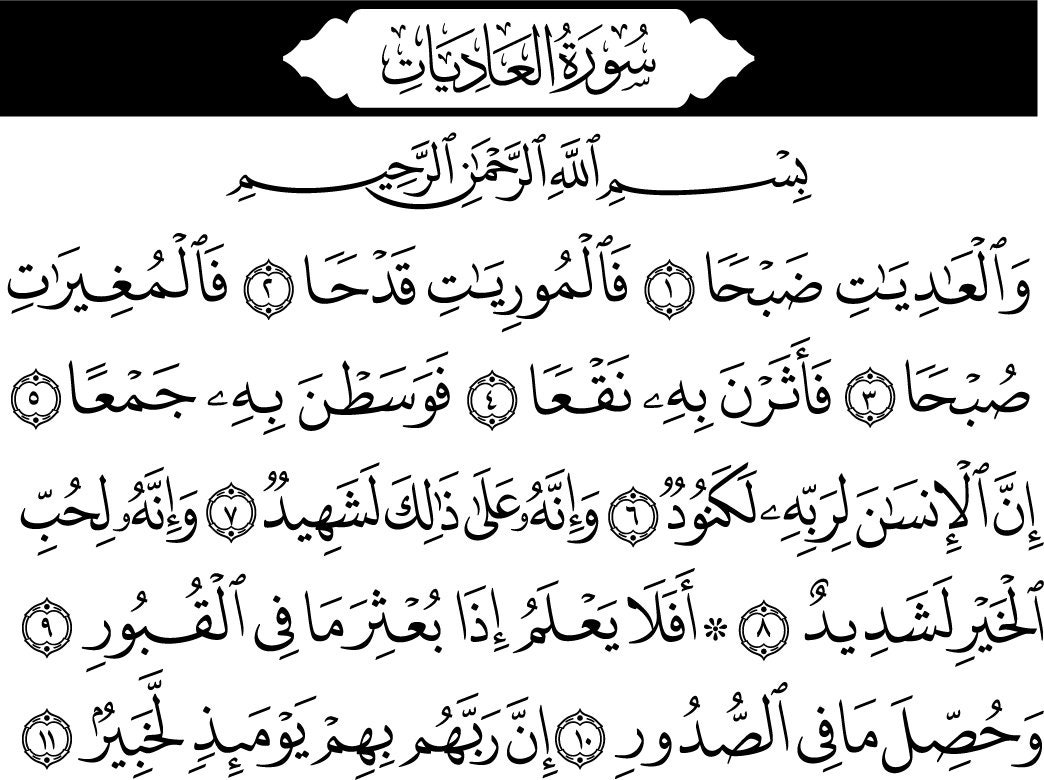 سُورَةُ العَادِيَاتِ
بِسْمِ ٱللَّهِ ٱلرَّحْمَٰنِ ٱلرَّحِيمِ
وَٱلْعَٰدِيَٰتِ ضَبْحًا ١ فَٱلْمُورِيَٰتِ قَدْحًا ٢ فَٱلْمُغِيرَٰتِ
صُبْحًا ٣ فَأَثَرْنَ بِهِۦ نَقْعًا ٤ فَوَسَطْنَ بِهِۦ جَمْعًا ٥
إِنَّ ٱلْإِنسَٰنَ لِرَبِّهِۦ لَكَنُودٌ ٦ وَإِنَّهُۥ عَلَىٰ ذَٰلِكَ لَشَهِيدٌ ٧ وَإِنَّهُۥ لِحُبِّ
ٱلْخَيْرِ لَشَدِيدٌ ٨ * أَفَلَا يَعْلَمُ إِذَا بُعْثِرَ مَا فِى ٱلْقُبُورِ ٩
وَحُصِّلَ مَا فِى ٱلصُّدُورِ ١٠ إِنَّ رَبَّهُم بِهِمْ يَوْمَئِذٍ لَّخَبِيرٌۢ ١١